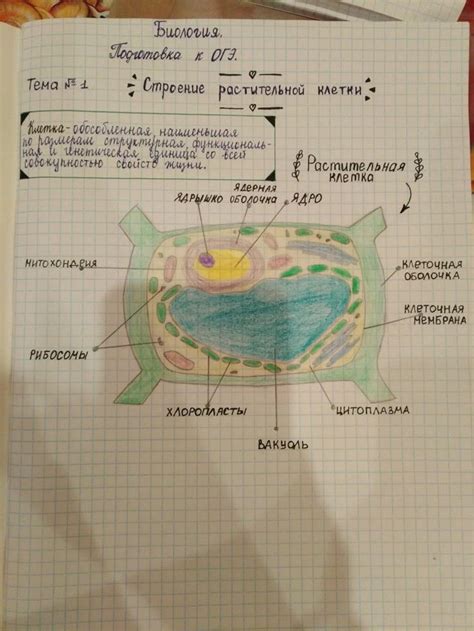 Биология.
Подготовка к ОГЭ.
Тема №1
Строение растительной клетки
Клетка - обособленная, наименьшая
по размерам структурная, функциональ-
ная и генетическая единица со всей
совокупностью свойств жизни.
Растительная
клетка
ядерная
ядрышко оболочка ядро
митохондрия
клеточная
оболочка
клеточная
мембрана
рибосомы
хлоропласты
цитоплазма
вакуоль